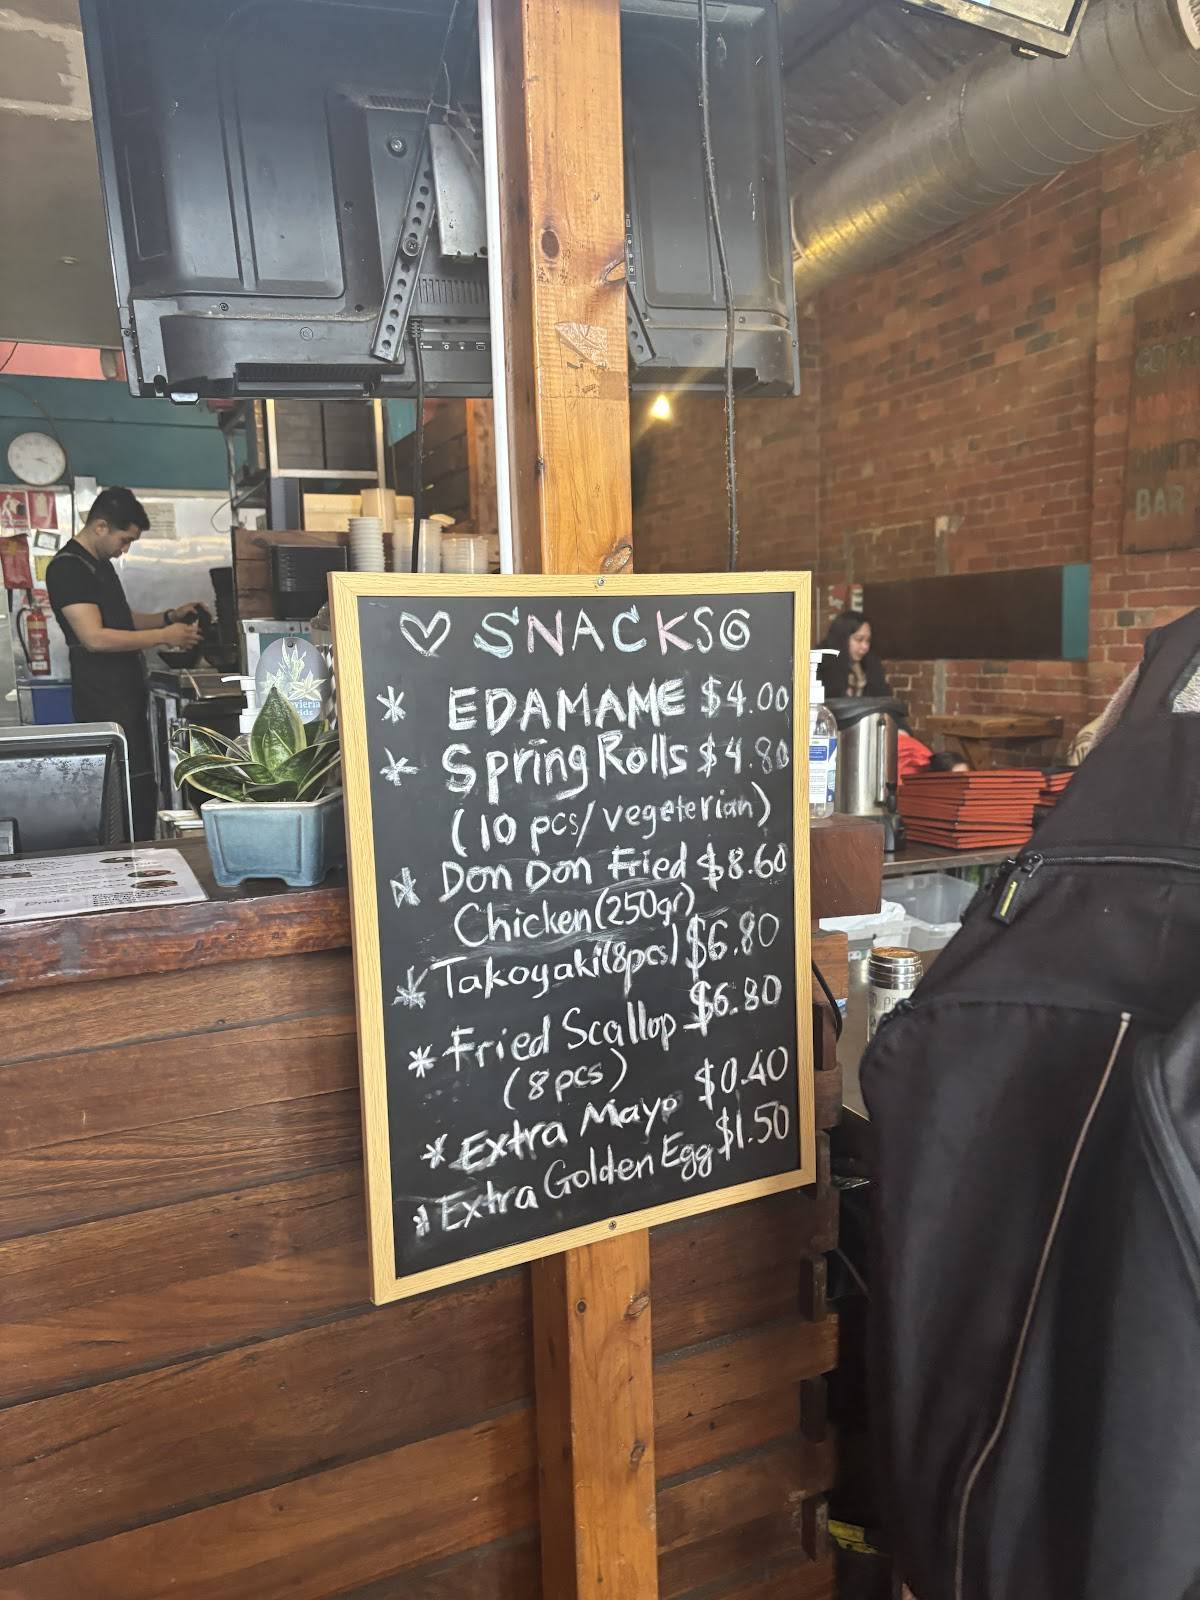 ♡ SNACKS
* EDAMAME $4.00
* Spring Rolls $4.80
(10 pcs/vegeterian)
* Don Don Fried $8.60
Chicken (250gr)
* Takoyaki (8pcs) $6.80
* Fried Scallop $6.80
(8pcs)
* Extra Mayo $0.40
* Extra Golden Egg $1.50
BAR